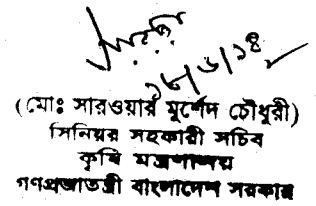 (মোঃ সারওয়ার মুর্শেদ চৌধুরী)
সিনিয়র সহকারী সচিব
কৃষি মন্ত্রণালয়
গণপ্রজাতন্ত্রী বাংলাদেশ সরকার